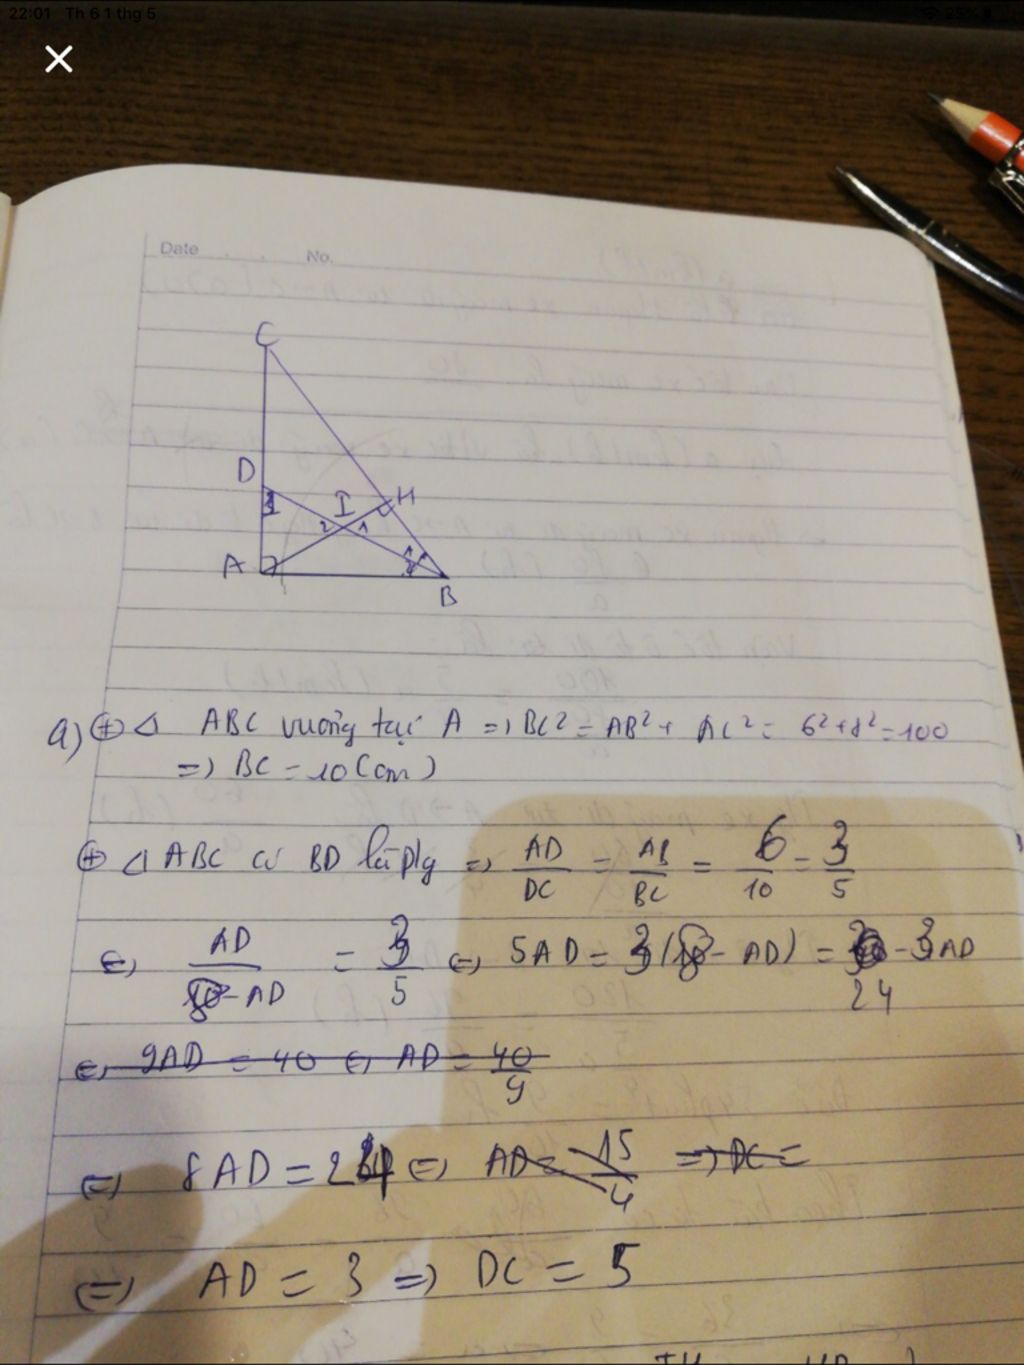 22:01 Th 6 1 thg 5
25%
Date . . No.
C
D
I
H
1
2 1
1
2
A
B
a) ⊕ Δ ABC vuông tại A => BC² = AB² + AC² = 6² + 8² = 100
=> BC = 10 (cm)
⊕ Δ ABC có BD là p/g => AD/DC = AB/BC = 6/10 = 3/5
<=> AD/(8 - AD) = 3/5 <=> 5AD = 3(8 - AD) = 24 - 3AD
<=> 9AD = 40 <=> AD = 40/9
<=> 8AD = 24 <=> AD = 15/4 => DC =
<=> AD = 3 => DC = 5